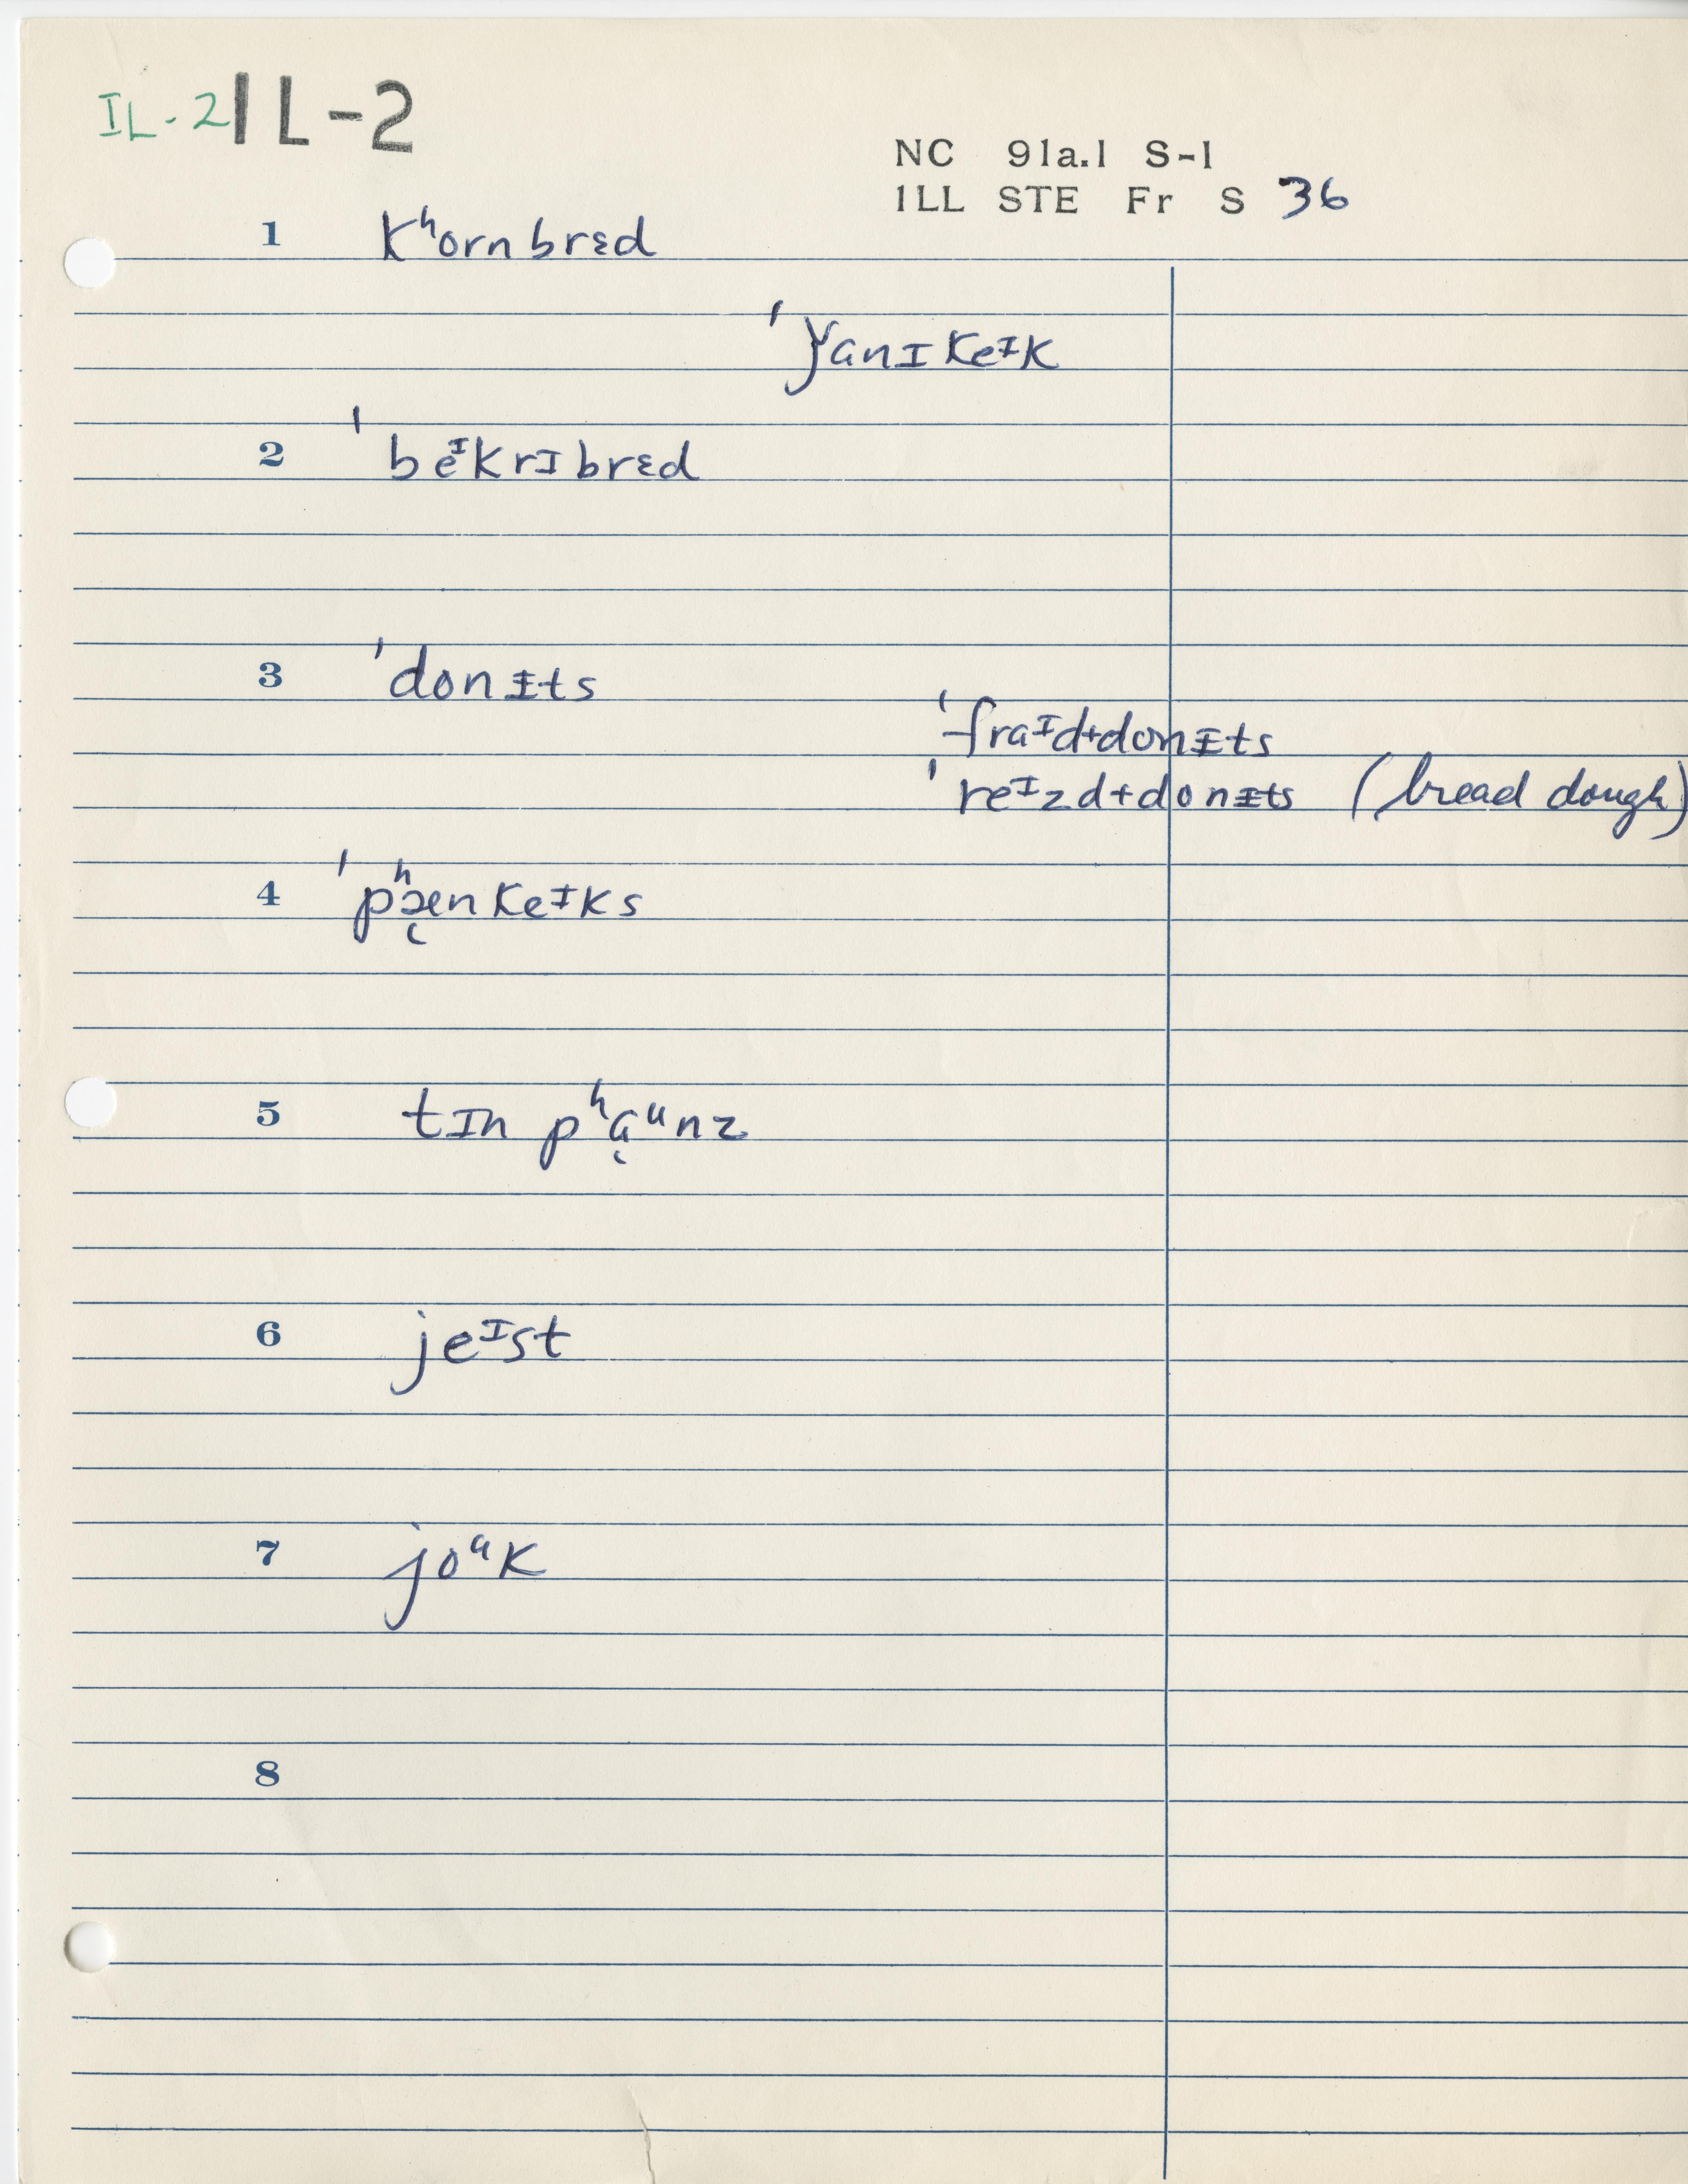 IL-2 IL-2
NC 91a.1 S-1
ILL STE Fr S 36
1 kʰornbrɛd
ˈǰanɪkeᶦk
2 ˈbeᶦkrɪbrɛd
3 ˈdonᵻts
ˈfraᶦd+donᵻts
ˈreᶦzd+donᵻts (bread dough)
4 ˈpʰæ̨nkeᶦks
5 tɪn pʰa̜ᵘnz
6 jeᶦst
7 joᵘk
8